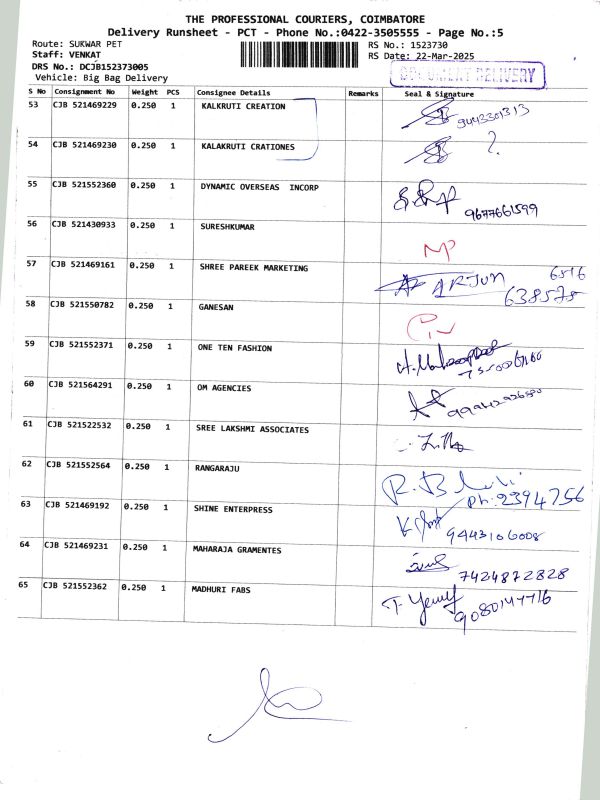 THE PROFESSIONAL COURIERS, COIMBATORE
Delivery Runsheet - PCT - Phone No.:0422-3505555 - Page No.:5
Route: SUKWAR PET RS No.: 1523730
Staff: VENKAT RS Date: 22-Mar-2025
DRS No.: DCJB152373005
Vehicle: Big Bag Delivery
DOCUMENT DELIVERY
S No Consignment No Weight PCS Consignee Details Remarks Seal & Signature
53 CJB 521469229 0.250 1 KALKRUTI CREATION 9443301313
54 CJB 521469230 0.250 1 KALAKRUTI CRATIONES ?
55 CJB 521552360 0.250 1 DYNAMIC OVERSEAS INCORP 9677661599
56 CJB 521430933 0.250 1 SURESHKUMAR NP
57 CJB 521469161 0.250 1 SHREE PAREEK MARKETING ARJUN 6516
638578
58 CJB 521550782 0.250 1 GANESAN
59 CJB 521552371 0.250 1 ONE TEN FASHION
60 CJB 521564291 0.250 1 OM AGENCIES
61 CJB 521522532 0.250 1 SREE LAKSHMI ASSOCIATES
62 CJB 521552564 0.250 1 RANGARAJU
Ph: 2394756
63 CJB 521469192 0.250 1 SHINE ENTERPRESS
9443106008
64 CJB 521469231 0.250 1 MAHARAJA GRAMENTES
7424872828
65 CJB 521552362 0.250 1 MADHURI FABS
9080147716